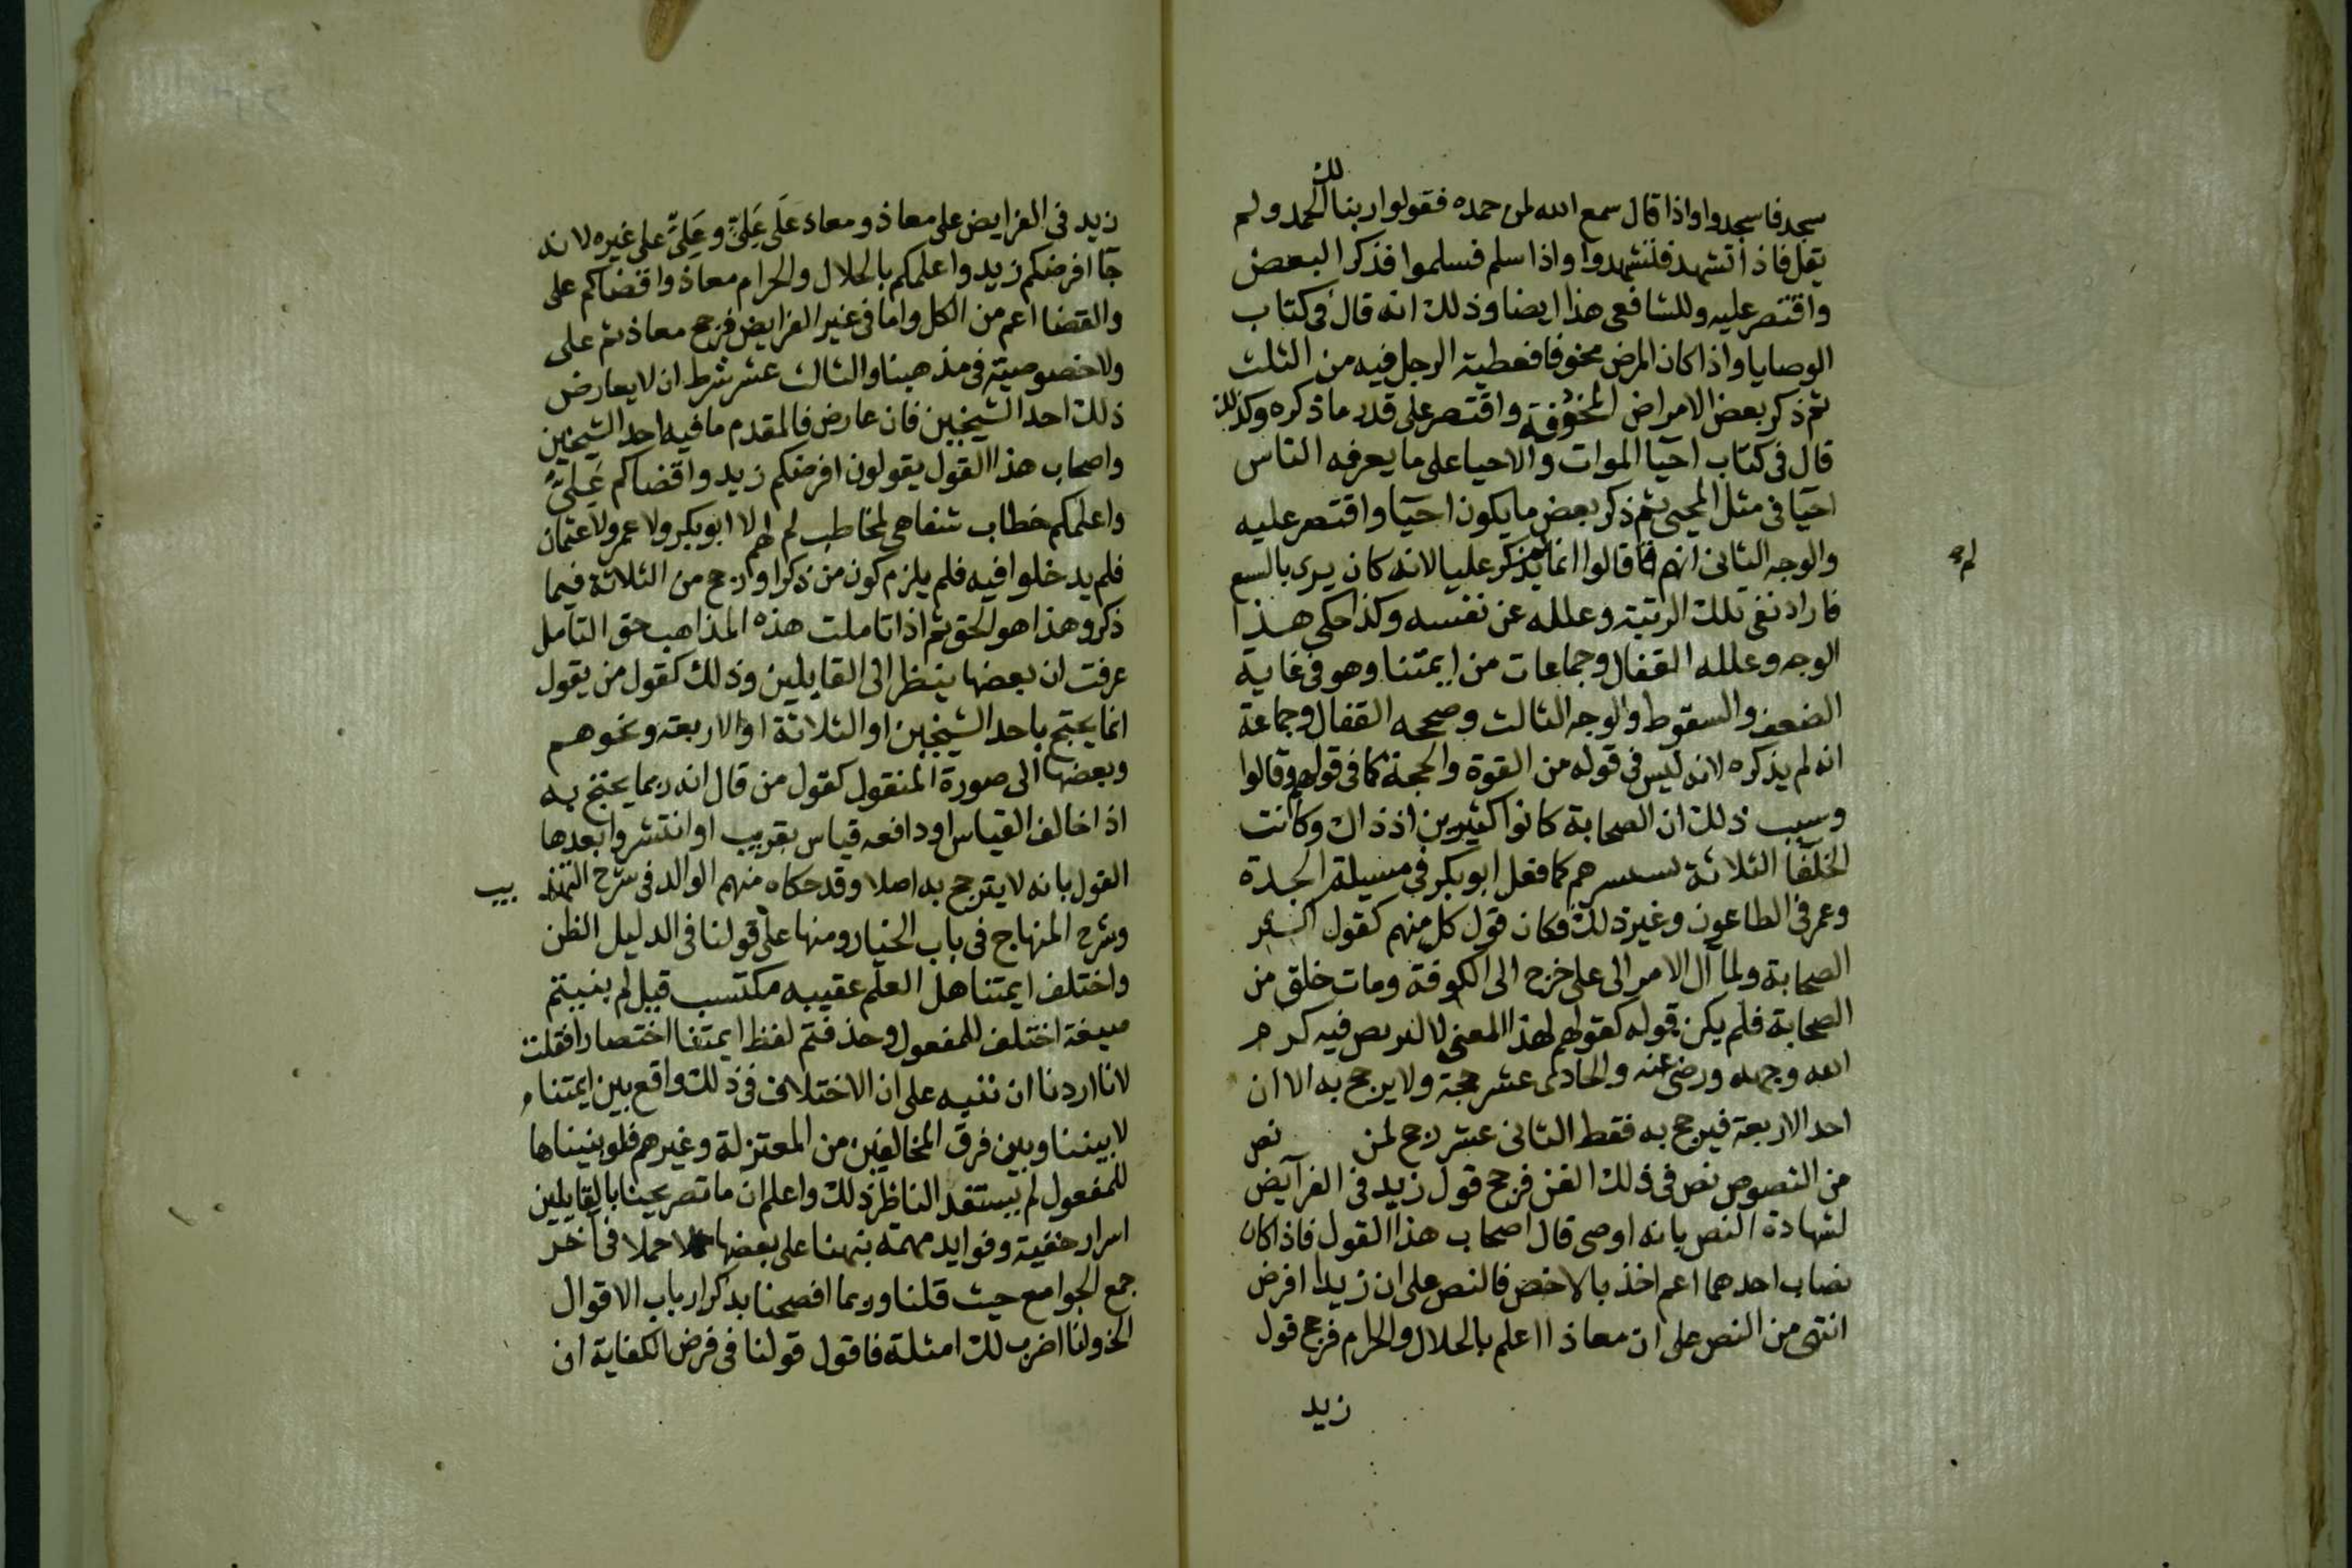 سجد فاسجدوا واذا قال سمع الله لمن حمده فقولوا ربنا لك الحمد ولم
يقل فاذا تشهد فتشهدوا واذا سلم فسلموا فذكر البعض
واقتصر عليه وللشافعي هذا ايضا وذلك انه قال في كتاب
الوصايا واذا كان المرض مخوفا فعطية الرجل فيه من الثلث
ثم ذكر بعض الامراض المخوفة واقتصر على قدر ما ذكره وكذلك
قال في كتاب احيا الموات والاحيا على ما يعرفه الناس
احيا في مثل المحيى ثم ذكر بعض ما يكون احيا واقتصر عليه
والوجه الثاني انهم قالوا انما لم يذكر عليا لانه كان يرى بالسع
لم
فاراد نفي تلك الرتبة وعلله عن نفسه وكذا حكى هذا
الوجه وعلله القفال وجماعات من ايمتنا وهو في غاية
الضعف والسقوط والوجه الثالث وصححه القفال وجماعة
انه لم يذكره لانه ليس في قوله من القوة والحجة كما في قولهم وقالوا
وسبب ذلك ان الصحابة كانوا كثيرين اذ ذاك وكانت
الخلفا الثلاثة هم كما فعل ابو بكر في مسيلة الجدة
وعمر في الطاعون وغير ذلك فكان قول كل منهم كقول اكثر
الصحابة ولما آل الامر الى علي خرج الى الكوفة ومات خلق من
الصحابة فلم يكن قوله كقولهم لهذا المعنى لا فيه كرم
الله وجهه ورضي عنه والحادي عشر حجة ولا يرجح به الا ان
احد الاربعة فيرجح به فقط الثاني عشر رجح لمن نص
من النصوص نص في ذلك الفن فرجح قول زيد في الفرايض
لشهادة النص بانه اوصى قال اصحاب هذا القول فاذا كان
نصاب احدهما اعم اخذ بالاخص فالنص على ان زيدا افرض
انتهى من النص على ان معاذا اعلم بالحلال والحرام فرجح قول
زيد
زيد في الفرايض على معاذ ومعاذ على علي وعلي على غيره لانه
جا افرضكم زيد واعلمكم بالحلال والحرام معاذ واقضاكم علي
والقضا اعم من الكل واما في غير الفرايض فرجح معاذ ثم علي
ولا خصوصية في مذهبنا والثالث عشر شرط ان لا يعارض
ذلك احد الشيخين فان عارض فالمقدم ما فيه احد الشيخين
واصحاب هذا القول يقولون افرضكم زيد واقضاكم علي
واعلمكم خطاب شفاهي لمخاطب لم لهم لا ابو بكر ولا عمر ولا عثمان
فلم يدخلوا فيه فلم يلزم كون من ذكر ارجح من الثلاثة فيما
ذكر وهذا هو الحق ثم اذا تاملت هذه المذاهب حق التامل
عرفت ان بعضها ينظر الى القايلين وذلك كقول من يقول
انما يحتج باحد الشيخين او الثلاثة او الاربعة ونحوهم
وبعضها الى صورة المنقول كقول من قال انه ربما يحتج به
اذا خالف القياس او دافعه قياس بقريب او انتشر وابعدها
القول بانه لا يترجح به اصلا وقد حكاه منهم الوالد في شرح التهذيب
وشرح المنهاج في باب الخيار ومنها على قولنا في الدليل الظن
واختلف ايمتنا هل العلم عقيبه مكتسب قيل لم بنيتم
صيغة اختلف للمفعول وحذفتم لفظ ايمتنا اختصارا قلت
لانا اردنا ان ننبه على ان الاختلاف في ذلك واقع بين ايمتنا
لا بيننا وبين فرق المخالفين من المعتزلة وغيرهم فلو بنيناها
للمفعول لم يستفد الناظر ذلك واعلم ان ما تصريحنا بالقايلين
اسرار خفية وفوايد مهمة نبهنا على بعضها حملا في آخر
جمع الجوامع حيث قلنا وربما افصحنا بذكر ارباب الاقوال
الخ ولنا اضرب لك امثلة فاقول قولنا في فرض الكفاية ان